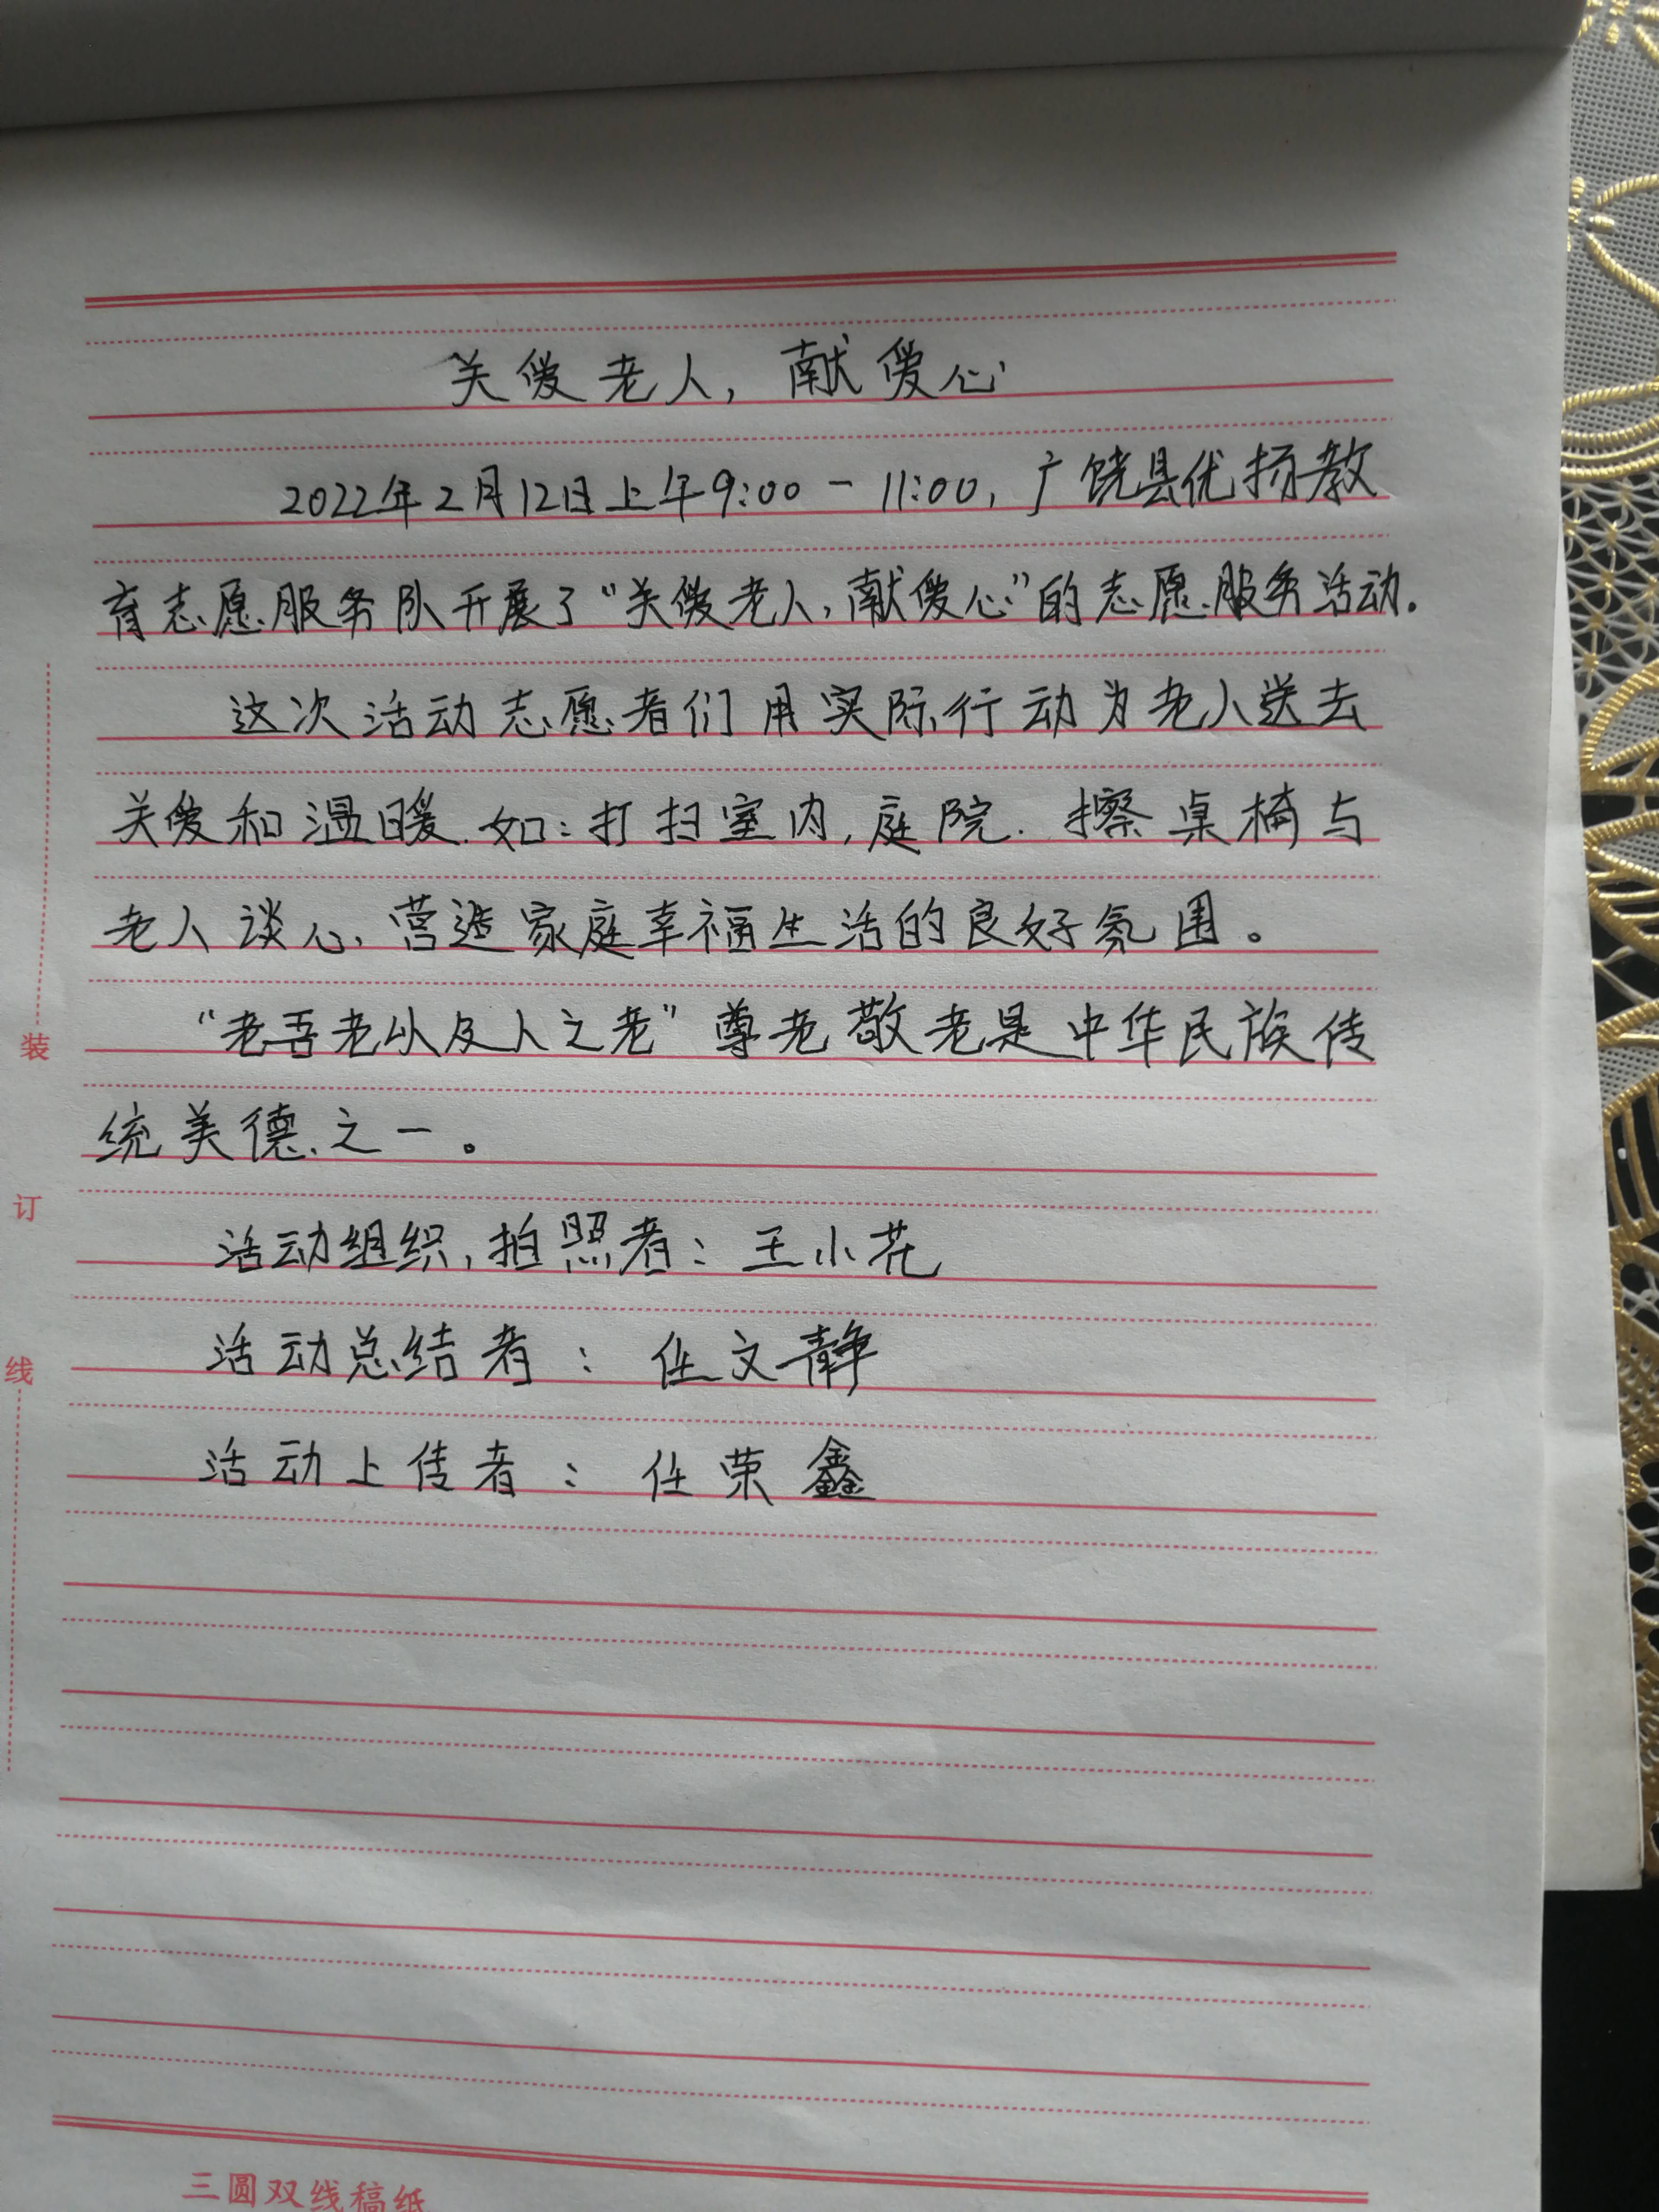 关爱老人，献爱心
2022年2月12日上午9:00-11:00，广饶县优扬教
育志愿服务队开展了“关爱老人，献爱心”的志愿服务活动.
这次活动志愿者们用实际行动为老人送去
关爱和温暖.如:打扫室内,庭院.擦桌椅与
老人谈心，营造家庭幸福生活的良好氛围。
“老吾老以及人之老”尊老敬老是中华民族传
统美德之一。
活动组织,拍照者:王小花
活动总结者:任文静
活动上传者:任荣鑫
装
订
线
三圆双线稿纸